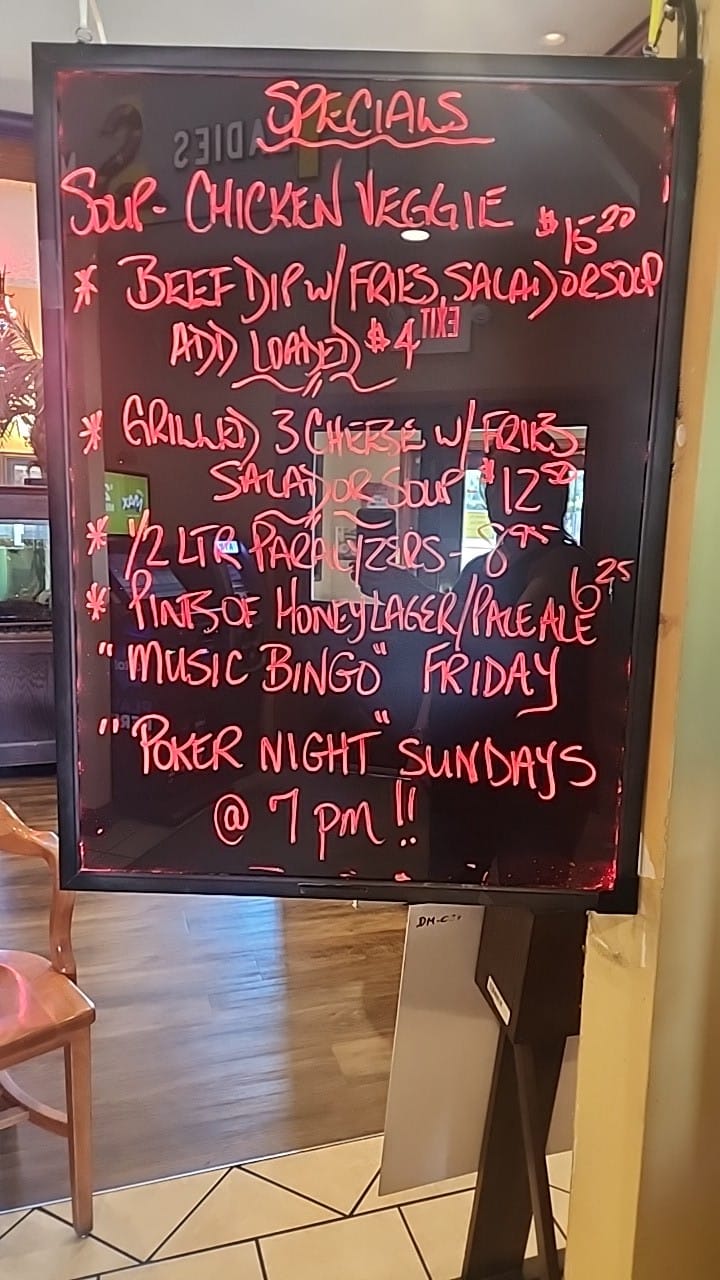 SPECIALS
SOUP- CHICKEN VEGGIE
$15.20
* BEEF DIP W/ FRIES, SALAD OR SOUP
ADD LOADED $4
EXIT
* GRILLED 3 CHEESE W/ FRIES
SALAD OR SOUP $12.50
* 1/2 LTR PARALYZERS - 8.95
* PINTS OF HONEY LAGER/PALE ALE 6.25
"MUSIC BINGO" FRIDAY
"POKER NIGHT" SUNDAYS
@ 7 PM!!
LADIES